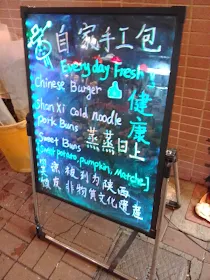 自家手工包
Every day Fresh!
Chinese Burger
健康
Shan Xi Cold noodle
Pork Buns
蒸蒸日上
Sweet Buns
[Sweet potato, pumpkin, Matcha]
列为陕西
非物質文化遺產